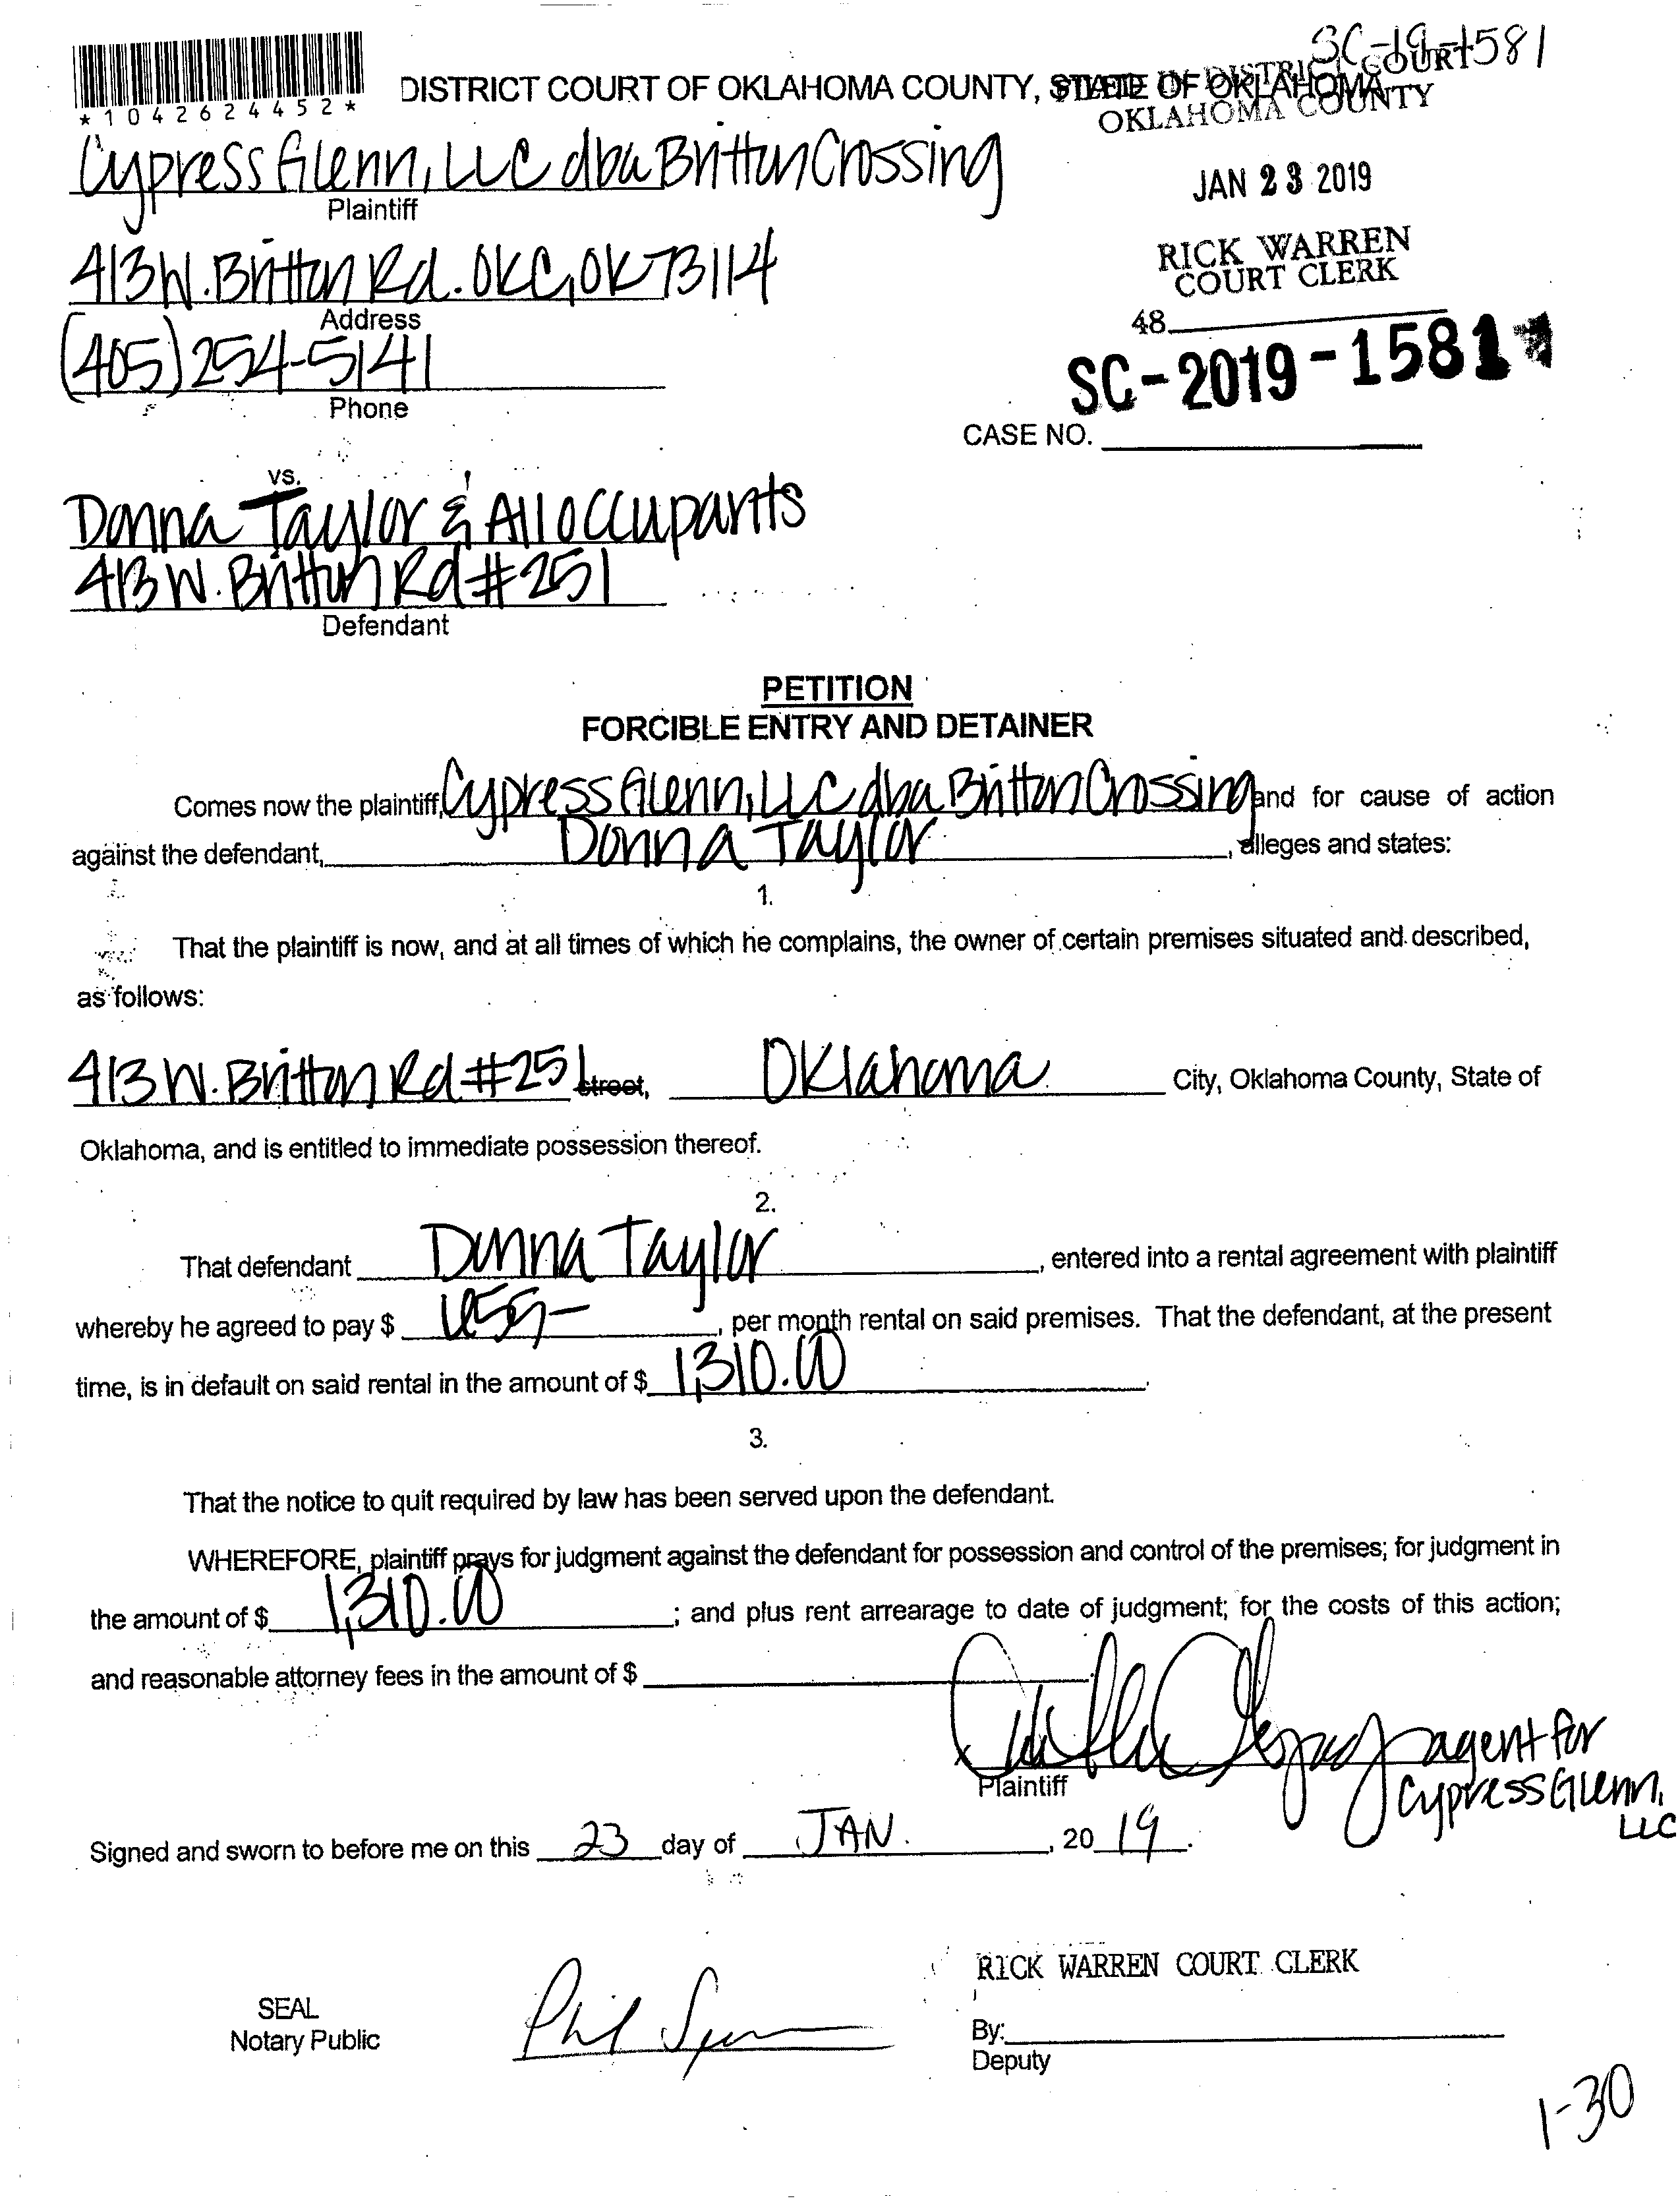 SC-19-1581
*1042624452*
DISTRICT COURT OF OKLAHOMA COUNTY, STATE OF OKLAHOMA
FILED IN DISTRICT COURT
OKLAHOMA COUNTY
Cypress Glenn, LLC dba Britton Crossing
Plaintiff
JAN 23 2019
413 W. Britton Rd. OKC, OK 73114
Address
RICK WARREN
COURT CLERK
(405) 254-5141
Phone
48
SC-2019-1581
CASE NO.
vs.
Donna Taylor & All occupants
413 W. Britton Rd #251
Defendant
PETITION
FORCIBLE ENTRY AND DETAINER
Comes now the plaintiff, Cypress Glenn, LLC dba Britton Crossing and for cause of action
against the defendant, Donna Taylor, alleges and states:
1.
That the plaintiff is now, and at all times of which he complains, the owner of certain premises situated and described,
as follows:
413 W. Britton Rd #251 street, Oklahoma City, Oklahoma County, State of
Oklahoma, and is entitled to immediate possession thereof.
2.
That defendant Donna Taylor, entered into a rental agreement with plaintiff
whereby he agreed to pay $ 655-, per month rental on said premises. That the defendant, at the present
time, is in default on said rental in the amount of $ 1,310.00.
3.
That the notice to quit required by law has been served upon the defendant.
WHEREFORE, plaintiff prays for judgment against the defendant for possession and control of the premises; for judgment in
the amount of $ 1,310.00; and plus rent arrearage to date of judgment; for the costs of this action;
and reasonable attorney fees in the amount of $
agent for
Plaintiff
Cypress Glenn, LLC
Signed and sworn to before me on this 23 day of JAN., 2019.
RICK WARREN COURT CLERK
SEAL
Notary Public
By:
Deputy
1-30